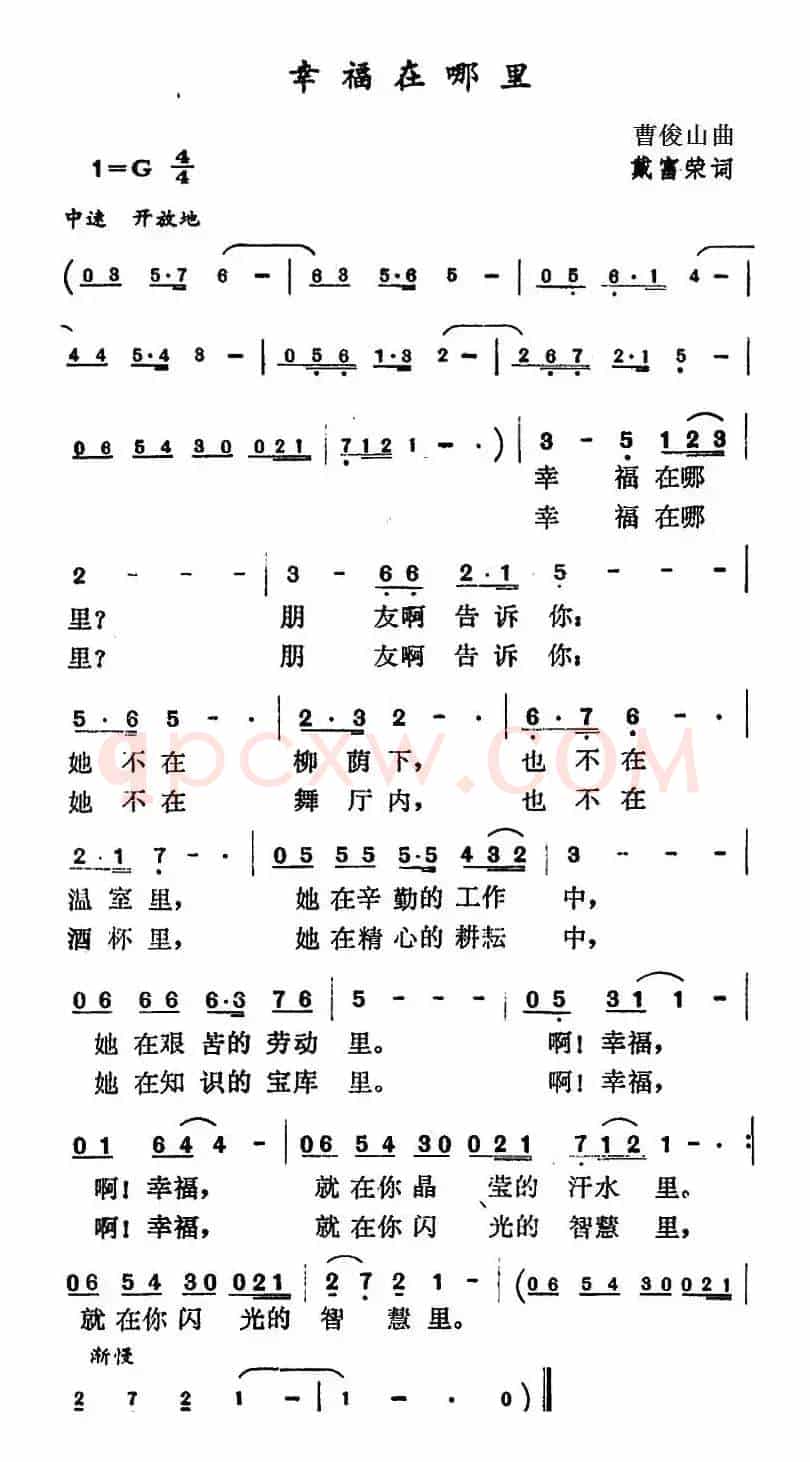 幸福在哪里
曹俊山曲
1=G 4/4
戴富荣词
中速 开放地
(03 5·7 6 - | 63 5·6 5 - | 05 6·1 4 - |
44 5·4 3 - | 056 1·3 2 - | 267 2·1 5 - |
06 54 30 021 | 7121 - ·) | 3 - 5 123
幸 福 在哪
幸 福 在哪
2 - - - | 3 - 66 2·1 5 - - - |
里? 朋 友啊 告诉 你:
里? 朋 友啊 告诉 你:
5·6 5 - · | 2·3 2 - · | 6·7 6 - · |
她不在 柳荫下, 也不在
她不在 舞厅内, 也不在
2·1 7 - · | 05 55 5·5 432 | 3 - - - |
温室里, 她在辛勤的工作 中,
酒杯里, 她在精心的耕耘 中,
06 66 6·3 76 | 5 - - - | 05 31 1 - |
她在艰苦的劳动 里。 啊!幸福,
她在知识的宝库 里。 啊!幸福,
01 64 4 - | 06 54 30 021 | 712 1 - · :|
啊!幸福, 就在你晶 莹的汗水 里。
啊!幸福, 就在你闪 光的智慧 里,
06 54 30 021 | 2 7 2 1 - | (06 54 30 021 |
就在你闪 光的智 慧里。
渐慢
2 7 2 1 - | 1 - · 0) ‖
qpcxw.COM